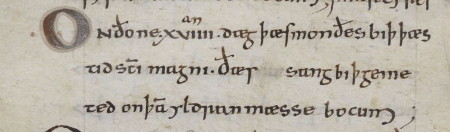 Ondone xviiii an dæg þæs monđes biþ þæs
tid sc̄i magni. đæs sang biþ geme
ted on þā yldran mæsse bocum;